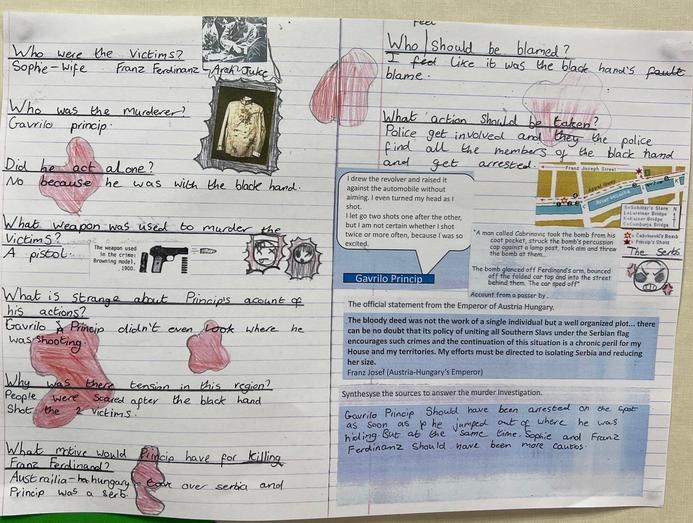 Who were the Victims?
Sophie - wife   Franz Ferdinanz - Arch-Juke
Who was the murderer?
Gavrilo princip
Did he act alone?
No because he was with the black hand.
What weapon was used to murder the
Victims?
A pistol.
The weapon used
in the crime:
Browning model,
1900.
What is strange about Princip's acount of
his actions?
Gavrilo Princip didn't even look where he
was shooting.
Why was there tension in this region?
People were scared after the black hand
Shot the 2 victims.
What motive would Princip have for killing
Franz Ferdinand?
Austrailia-hungary took over serbia and
Princip was a serb.
Feel
Who should be blamed?
I feel like it was the black hand's fault
blame.
What action should be taken?
Police get involved and they the police
find all the members of the black hand
and get arrested.
I drew the revolver and raised it
against the automobile without
aiming. I even turned my head as I
shot.
I let go two shots one after the other,
but I am not certain whether I shot
twice or more often, because I was so
excited.
Gavrilo Princip
Franz Joseph Street
"A man called Cabrinovic took the bomb from his
coat pocket, struck the bomb's percussion
cap against a lamp post, took aim and threw
the bomb at them..
The bomb glanced off Ferdinand's arm, bounced
off the folded car top and into the street
behind them. The car sped off"
Account from a passer by.
The Serbs
The official statement from the Emperor of Austria Hungary.
The bloody deed was not the work of a single individual but a well organized plot... there
can be no doubt that its policy of uniting all Southern Slavs under the Serbian flag
encourages such crimes and the continuation of this situation is a chronic peril for my
House and my territories. My efforts must be directed to isolating Serbia and reducing
her size.
Franz Josef (Austria-Hungary's Emperor)
Synthesyse the sources to answer the murder investigation.
Gavrilo Princip Should have been arrested on the spot
as soon as he jumped out of where he was
hiding. But at the same time. Sophie and Franz
Ferdinanz should have been more cautos